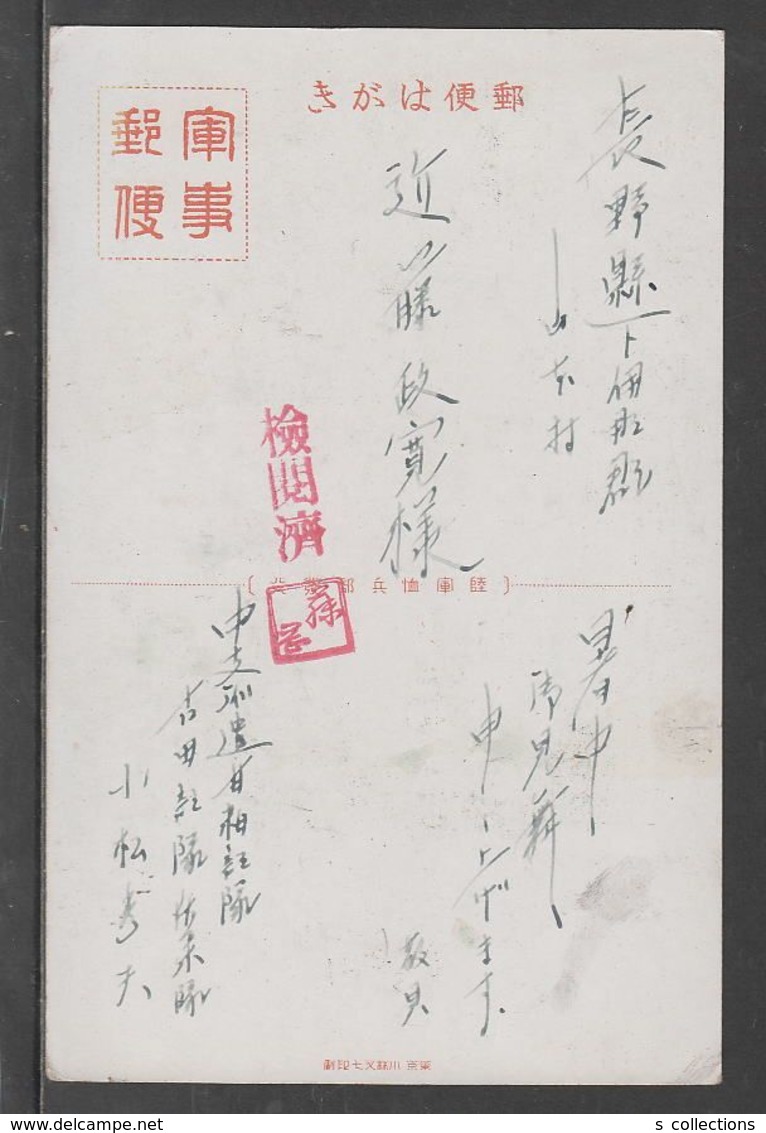 郵便はがき
軍事
郵便
長野縣下伊那郡
山本村
近藤政寛様
檢閲濟
陸軍恤兵部發行
暑中
御見舞
申し上げます
敬具
中支派遣甘粕部隊
吉田部隊佐
隊
小松
夫
東京 川 印刷
s collections